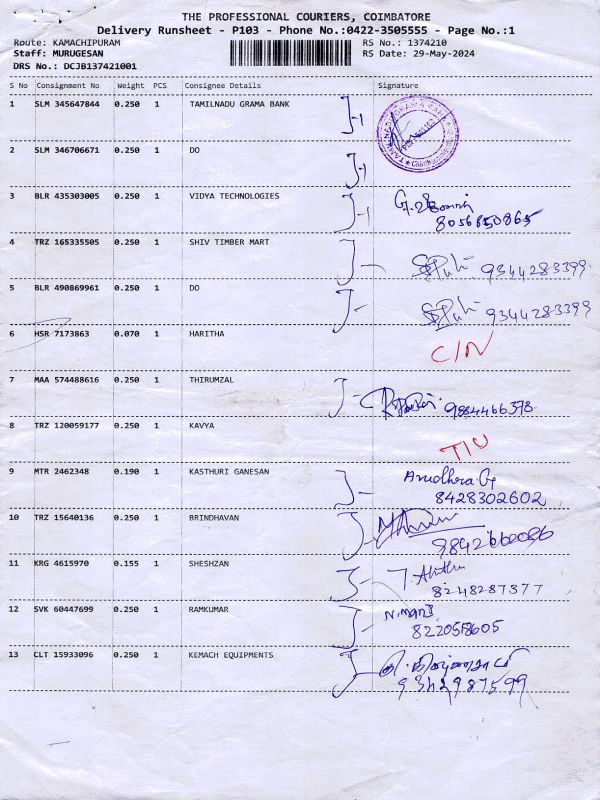 THE PROFESSIONAL COURIERS, COIMBATORE
Delivery Runsheet - P103 - Phone No.:0422-3505555 - Page No.:1
Route: KAMACHIPURAM RS No.: 1374210
Staff: MURUGESAN RS Date: 29-May-2024
DRS No.: DCJB137421001
S No Consignment No Weight PCS Consignee Details Signature
1 SLM 345647844 0.250 1 TAMILNADU GRAMA BANK
2 SLM 346706671 0.250 1 DO
3 BLR 435303005 0.250 1 VIDYA TECHNOLOGIES
8056650865
4 TRZ 165335505 0.250 1 SHIV TIMBER MART
9344283399
5 BLR 490869961 0.250 1 DO
9344283399
6 HSR 7173863 0.070 1 HARITHA
C/N
7 MAA 574488616 0.250 1 THIRUMZAL
9884466378
8 TRZ 120059177 0.250 1 KAVYA
9 MTR 2462348 0.190 1 KASTHURI GANESAN
8428302602
10 TRZ 15640136 0.250 1 BRINDHAVAN
11 KRG 4615970 0.155 1 SHESHZAN
8248287377
12 SVK 60447699 0.250 1 RAMKUMAR
N.Mani
13 CLT 15933096 0.250 1 KEMACH EQUIPMENTS